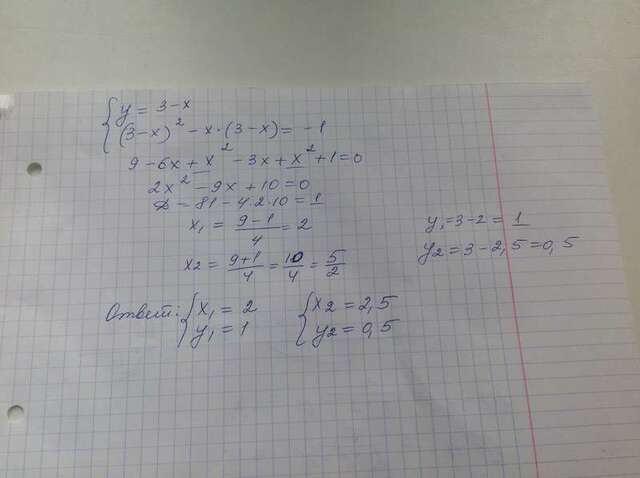 { y = 3 - x
(3-x)² - x·(3-x) = -1
9 - 6x + x² - 3x + x² + 1 = 0
2x² - 9x + 10 = 0
D = 81 - 4·2·10 = 1
x₁ = (9-1)/4 = 2
y₁ = 3 - 2 = 1
x2 = (9+1)/4 = 10/4 = 5/2
y2 = 3 - 2,5 = 0,5
Ответ: { x₁ = 2 { x2 = 2,5
y₁ = 1 y2 = 0,5